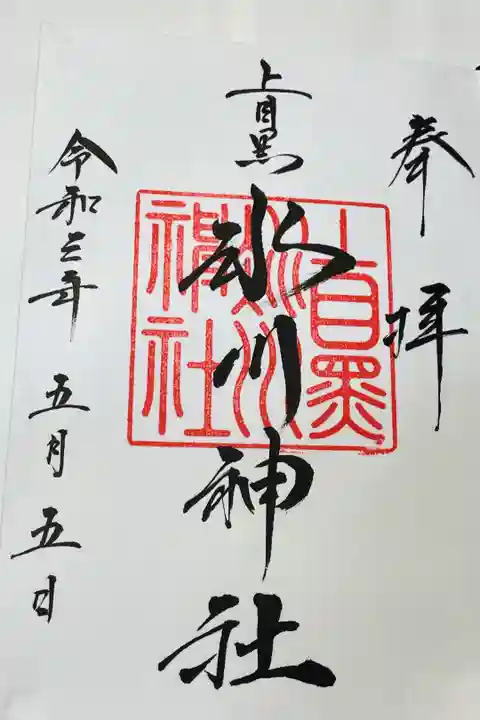 奉拝
上目黒
氷川神社
上目黒氷川神社
令和三年 五月 五日